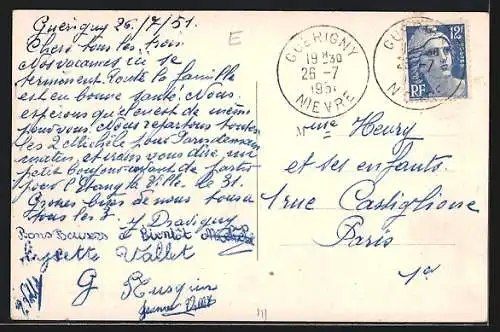 Guérigny 26/7/51.
Chers tous les trois
Nos vacances ici se
terminent. Toute la famille
est en bonne santé. Nous
espérons qu'il en est de même
pour vous. Nous repartons toutes
les 2 Michèle pour Paris demain
matin, et irons vous dire un
petit bonjour avant de partir
pour l'Etang la Ville. le 31.
Grosses bises de nous tous à
tous les 3.
Bons Baisers à bientôt Michèle
Vallet
G
E
GUERIGNY
19 H30
26 -7
1951
NIEVRE
GUERIGNY
12F
POSTES
RF
Mme Henry
et ses enfants
1 rue Castiglione
Paris
1er